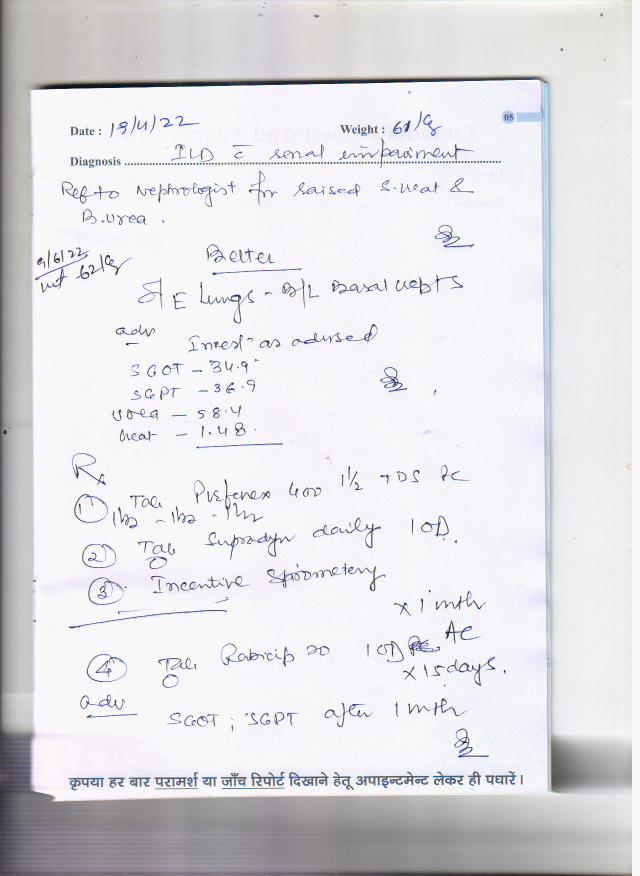 05
Date : 19/4/22 Weight : 61 kg
Diagnosis ILD c̄ renal impairment
Ref to Nephrologist for raised S. creat &
B. urea .
9/6/22
wt - 62 kg
Better
S/E Lungs - B/L Basal crepts
adv
Invest as advised
SGOT - 34.9
SGPT - 36.9
Urea - 58.4
Creat - 1.48
Rx
① Tab Pirfenex 400 1½ TDS PC
1½ - 1½ - 1½
② Tab Supradyn daily 1 OD.
③ Incentive Spirometery
x 1 mth
④ Tab Rabicip 20 1 OD AC
x 15 days.
adv
SGOT ; SGPT after 1 mth
कृपया हर बार परामर्श या जाँच रिपोर्ट दिखाने हेतू अपाइन्टमेन्ट लेकर ही पधारें ।